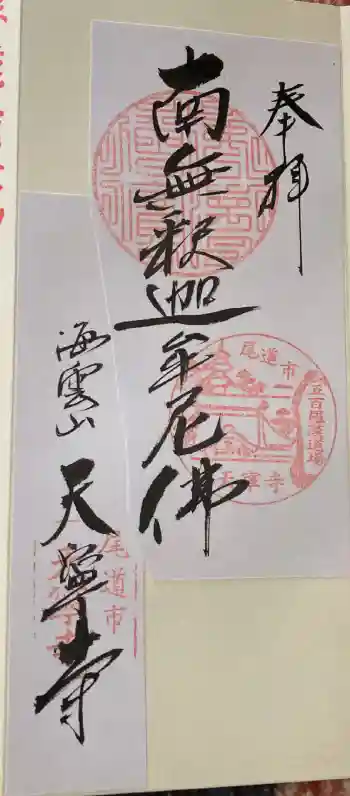 奉拝
南無釈迦牟尼佛
尾道市
五百羅漢道場
天寧寺
海雲山
天寧寺
尾道市